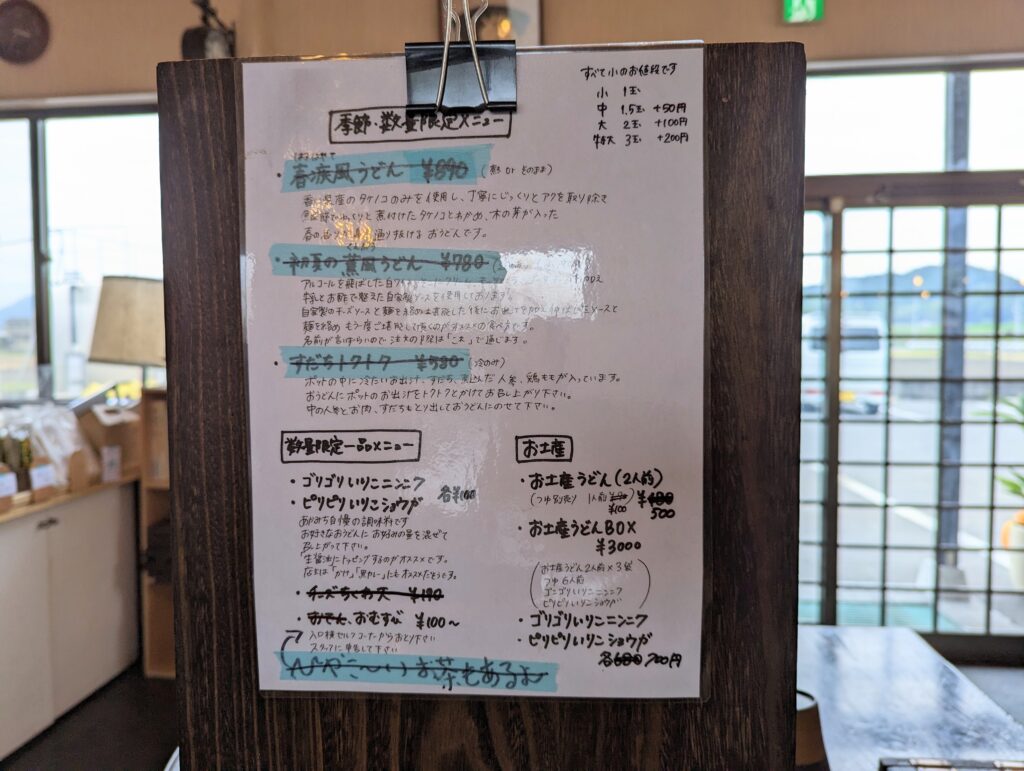 すべて小のお値段です
小 1玉
中 1.5玉 +50円
大 2玉 +100円
特大 3玉 +200円
季節・数量限定メニュー
はるはやて
・春疾風うどん ¥890 (熱 or そのまま)
香川県産のタケノコのみを使用し、丁寧にじっくりとアクを取り除き
じっくりと煮付けたタケノコとわかめ、木の芽が入った
春の 通り抜けるおうどんです。
くんぷう
・初夏の薫風うどん ¥780
アルコールを飛ばした自
牛乳とお酢で整えた自家製ソースを使用しております。
自家製のチーズソースと麺を絡め
麺を絡め もう一度ご堪能して頂くのがオススメの食べ方です。
名前が言いづらいので 注文の際は「これ」で通じます。
・すだちトクトク ¥580 (冷のみ)
ポットの中に冷たいお出汁、すだち、煮込んだ人参、鶏ももが入っています。
おうどんにポットのお出汁をトクトクとかけてお召し上がり下さい。
中の人参とお肉、すだちもとり出しておうどんにのせて下さい。
数量限定一品メニュー
・ゴリゴリいりこニンニク
・ピリピリいりこショウガ
各¥100
自慢の調味料です
お好きなおうどんにお好みの量を混ぜて
召上がって下さい。
「生醤油」にトッピングするのがオススメです。
・チーズちくわ天 ¥190
・おでん、おむすび ¥100~
入口横セルフコーナーからおとり下さい
スタッフに申告して下さい
ひやこ〜いお茶もあるよ
お土産
・お土産うどん(2人前)
(つゆ別売) 1人前 ¥100 ¥480
500
・お土産うどんBOX
¥3000
お土産うどん2人前×3袋
つゆ6人前
ゴリゴリいりこニンニク
ピリピリいりこショウガ
・ゴリゴリいりこニンニク
・ピリピリいりこショウガ
各680 700円